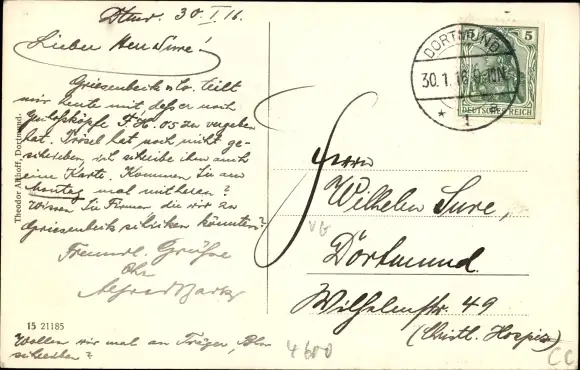 Dtmd. 30.I.16.
Lieber Herr Sure!
Griesenbeck & Co. teilt
mir heute mit, daß er noch
zu vergeben
hat. Trösel hat noch nicht ge-
schrieben, ich schreibe ihm auch
eine Karte. Kommen Sie am
Montag mal mit heran?
Wissen Sie Firmen die wir zu
Griesenbeck schicken könnten?
Freundl. Grüße
Ihr
Alfred Bartz
Wollen wir mal an Träger,
schreiben?
Theodor Althoff, Dortmund.
15 21185
DORTMUND
30.1.16.
* 1
5
DEUTSCHES REICH
Herrn
Wilhelm Sure,
Dortmund.
Wilhelmstr. 49
(Christl. Hospiz)
4600
CC